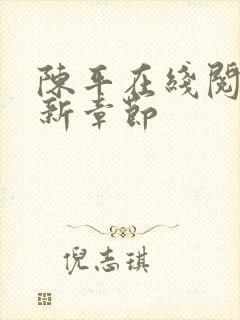 陳平在綫閱
新章節
倪志琪